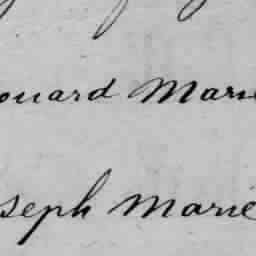 ouard Marie
seph Marie